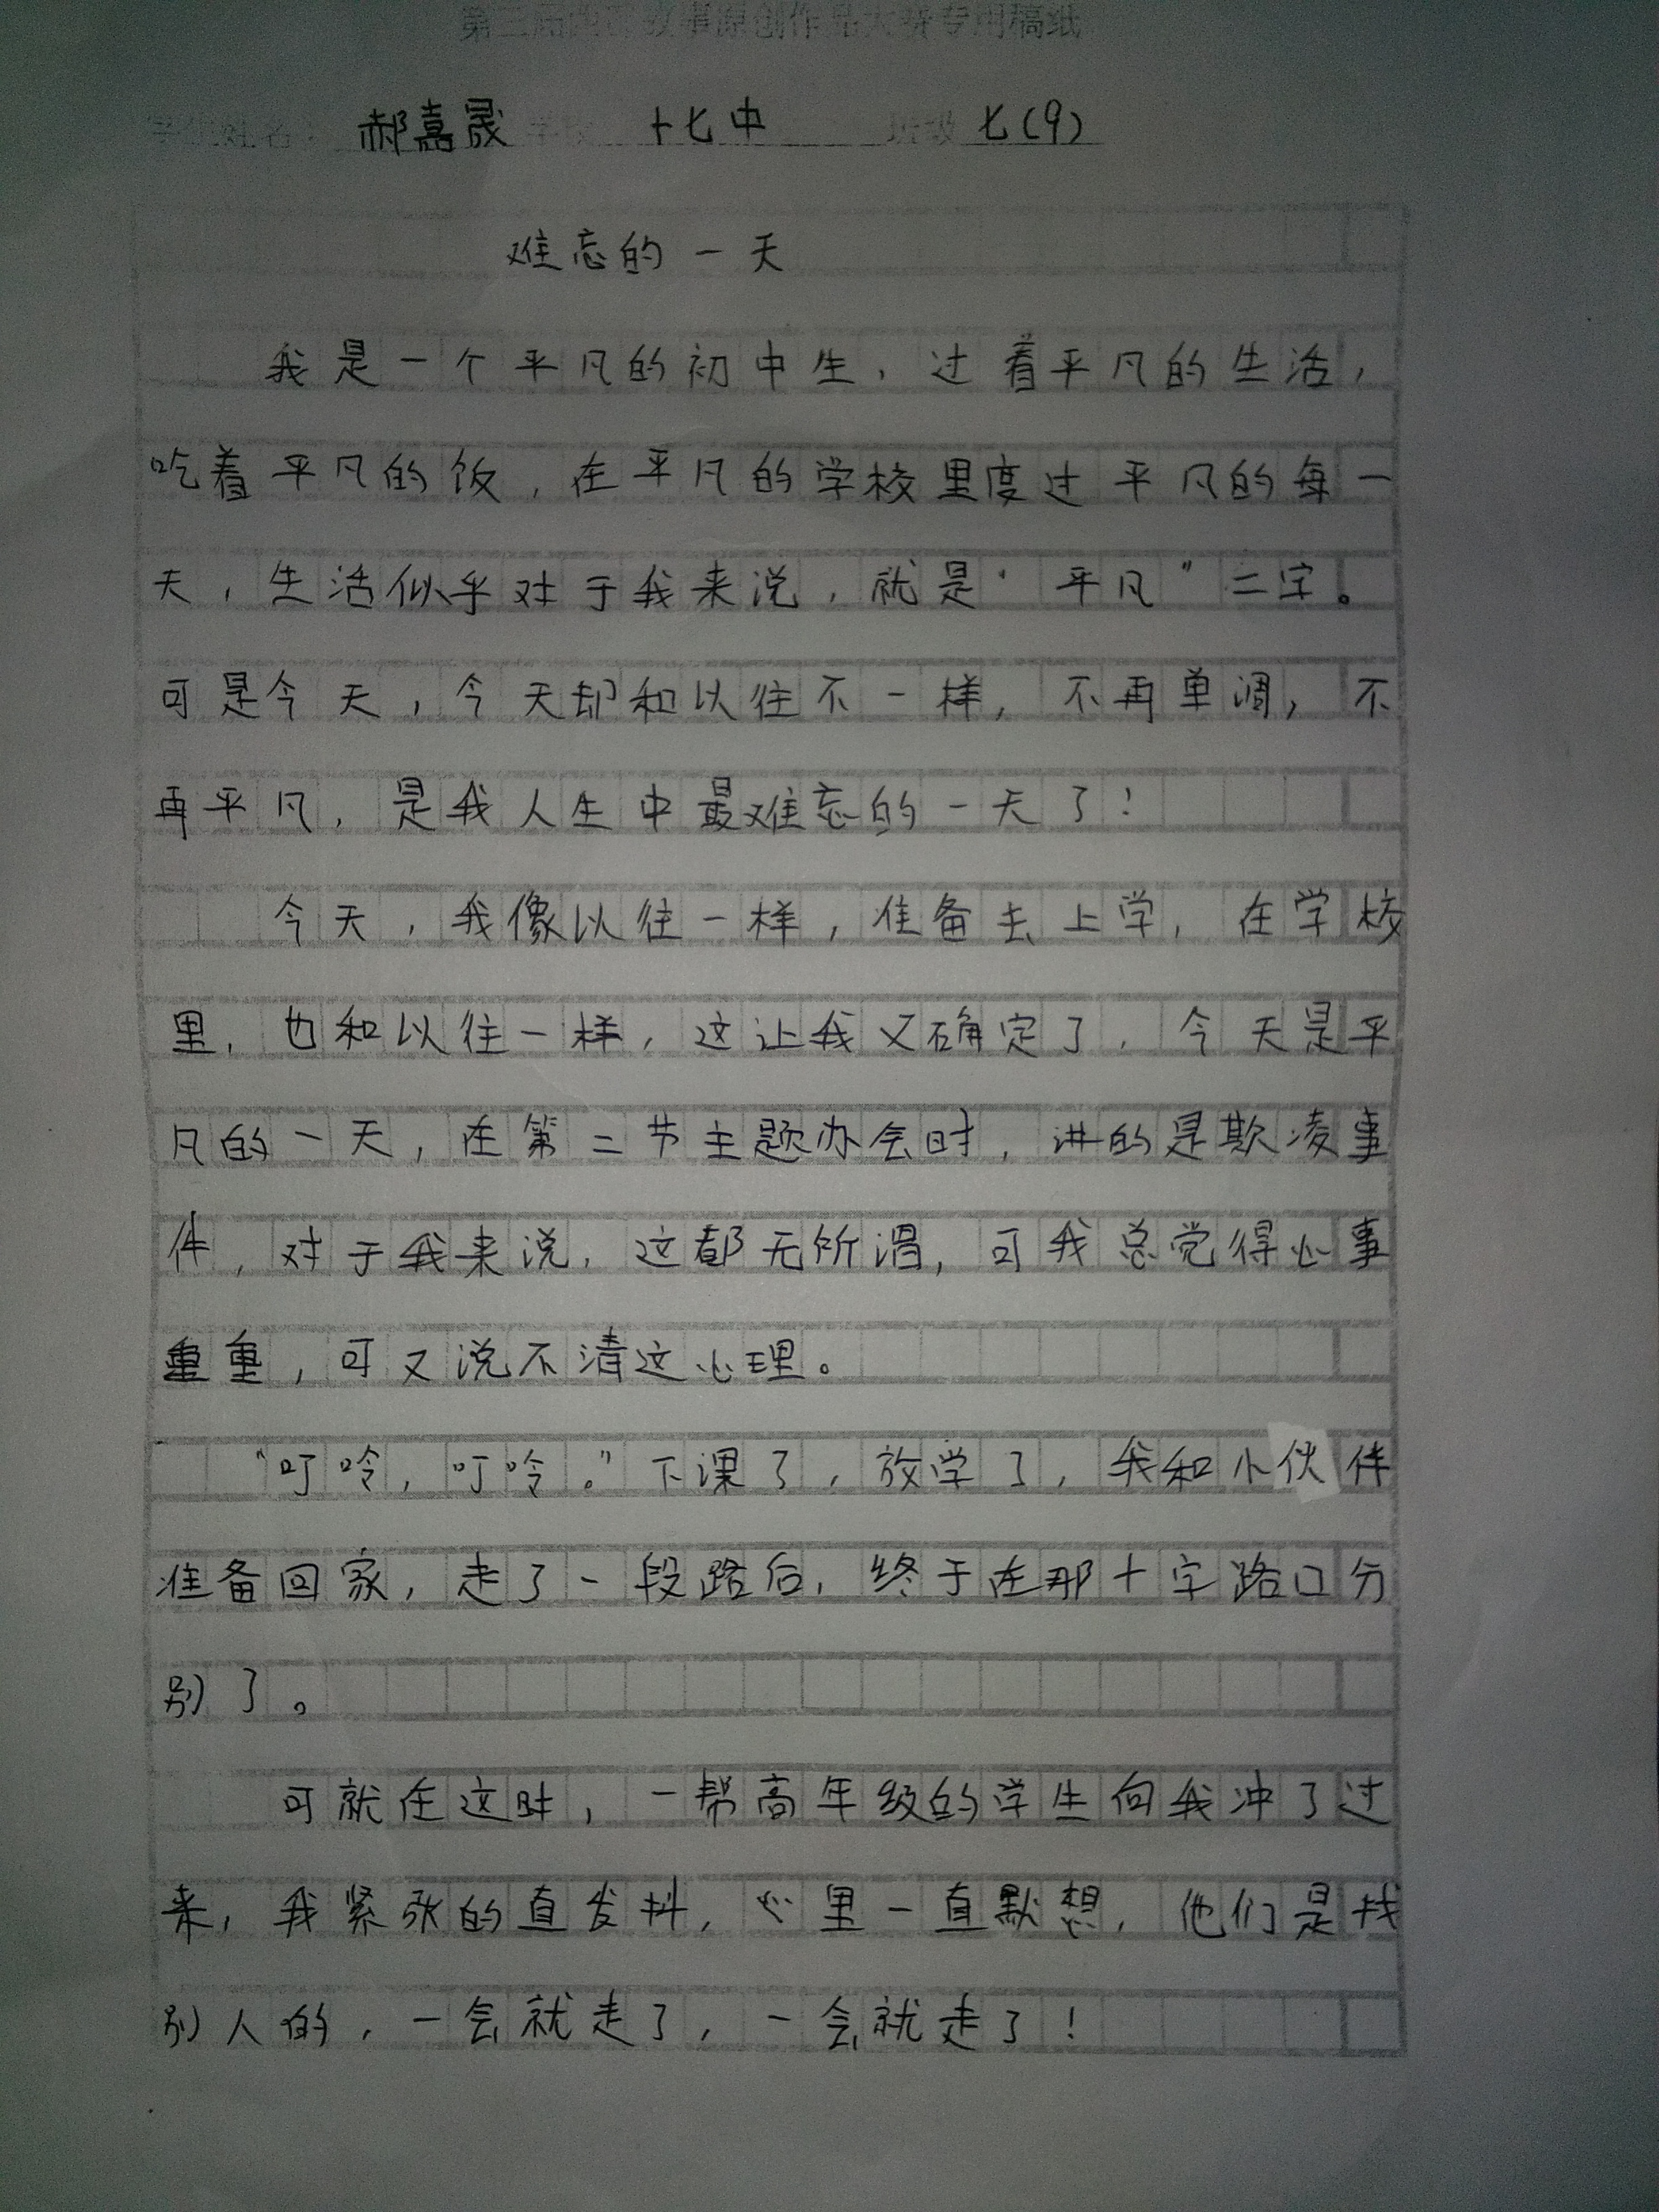 第三届 故事原创作品大赛专用稿纸
学生姓名: 郝嘉晟 学校 十七中 班级 七(9)
难忘的一天
我是一个平凡的初中生,过着平凡的生活,
吃着平凡的饭,在平凡的学校里度过平凡的每一
天,生活似乎对于我来说,就是“平凡”二字。
可是今天,今天却和以往不一样,不再单调,不
再平凡,是我人生中最难忘的一天了!
今天,我像以往一样,准备去上学,在学校
里,也和以往一样,这让我又确定了,今天是平
凡的一天,在第二节主题办会时,讲的是欺凌事
件,对于我来说,这都无所谓,可我总觉得心事
重重,可又说不清这心理。
“叮呤,叮呤。”下课了,放学了,我和小伙伴
准备回家,走了一段路后,终于在那十字路口分
别了。
可就在这时,一帮高年级的学生向我冲了过
来,我紧张的直发抖,心里一直默想,他们是找
别人的,一会就走了,一会就走了!